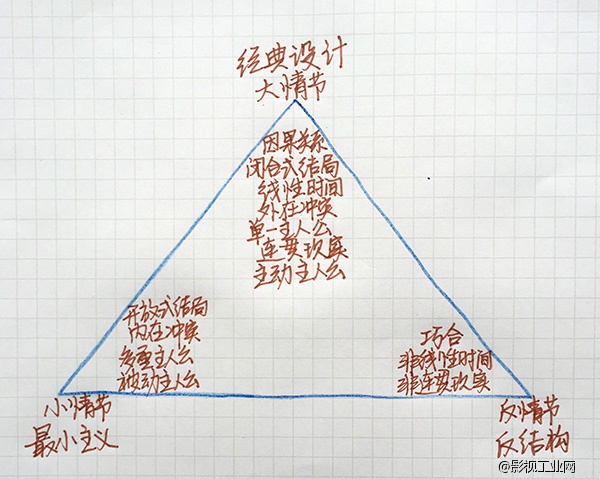 经典设计
大情节
因果关系
闭合式结局
线性时间
外在冲突
单一主人公
连贯现实
主动主人公
开放式结局
内在冲突
多重主人公
被动主人公
巧合
非线性时间
非连贯现实
小情节
最小主义
反情节
反结构
@影视工业网